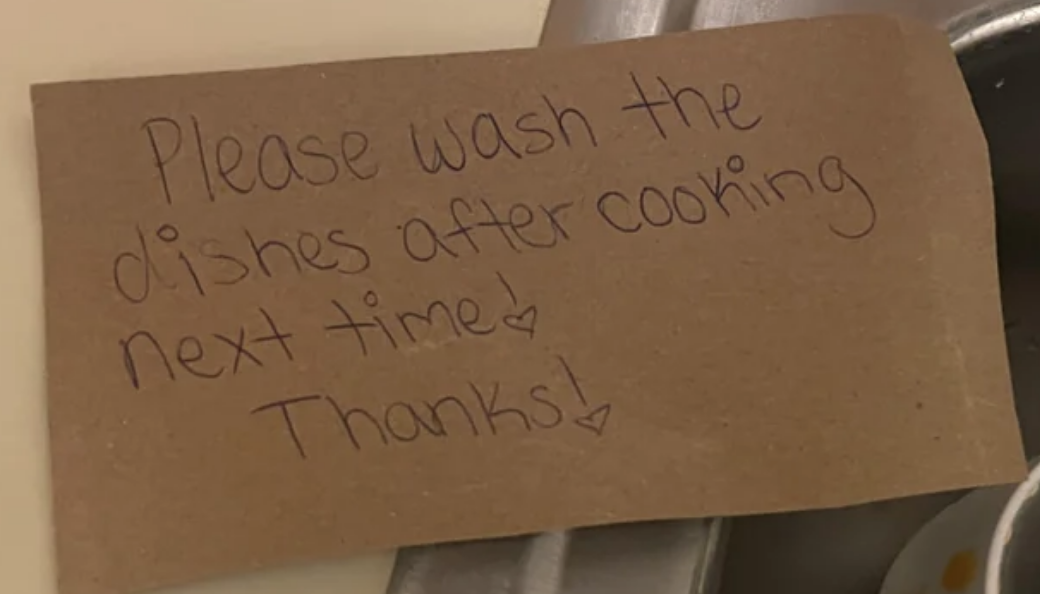 Please wash the
dishes after cooking
next time!
Thanks!